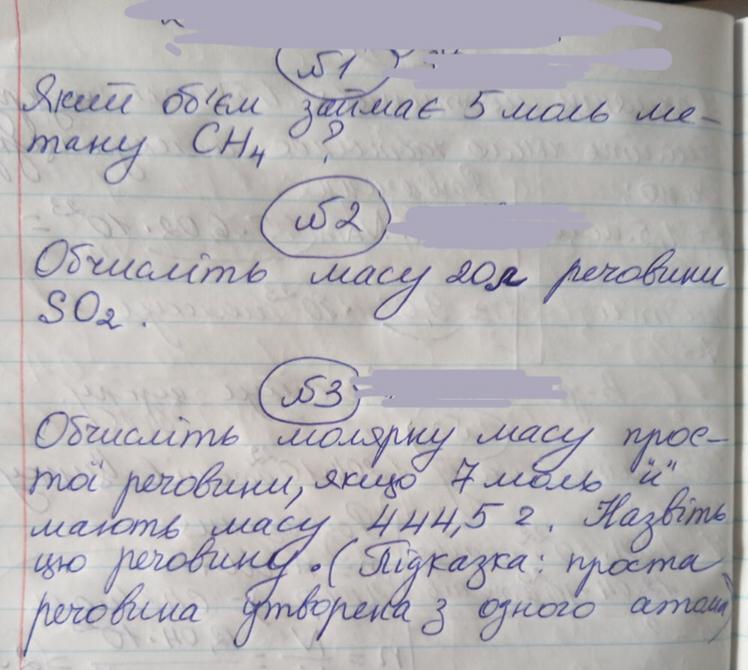 №1
Який об'єм займає 5 моль ме-
тану CH₄ ?
№2
Обчисліть масу 20л речовини
SO₂.
№3
Обчисліть молярну масу прос-
тої речовини, якщо 7 моль її
мають масу 444,5 г. Назвіть
цю речовину. (Підказка: проста
речовина утворена з одного атома)